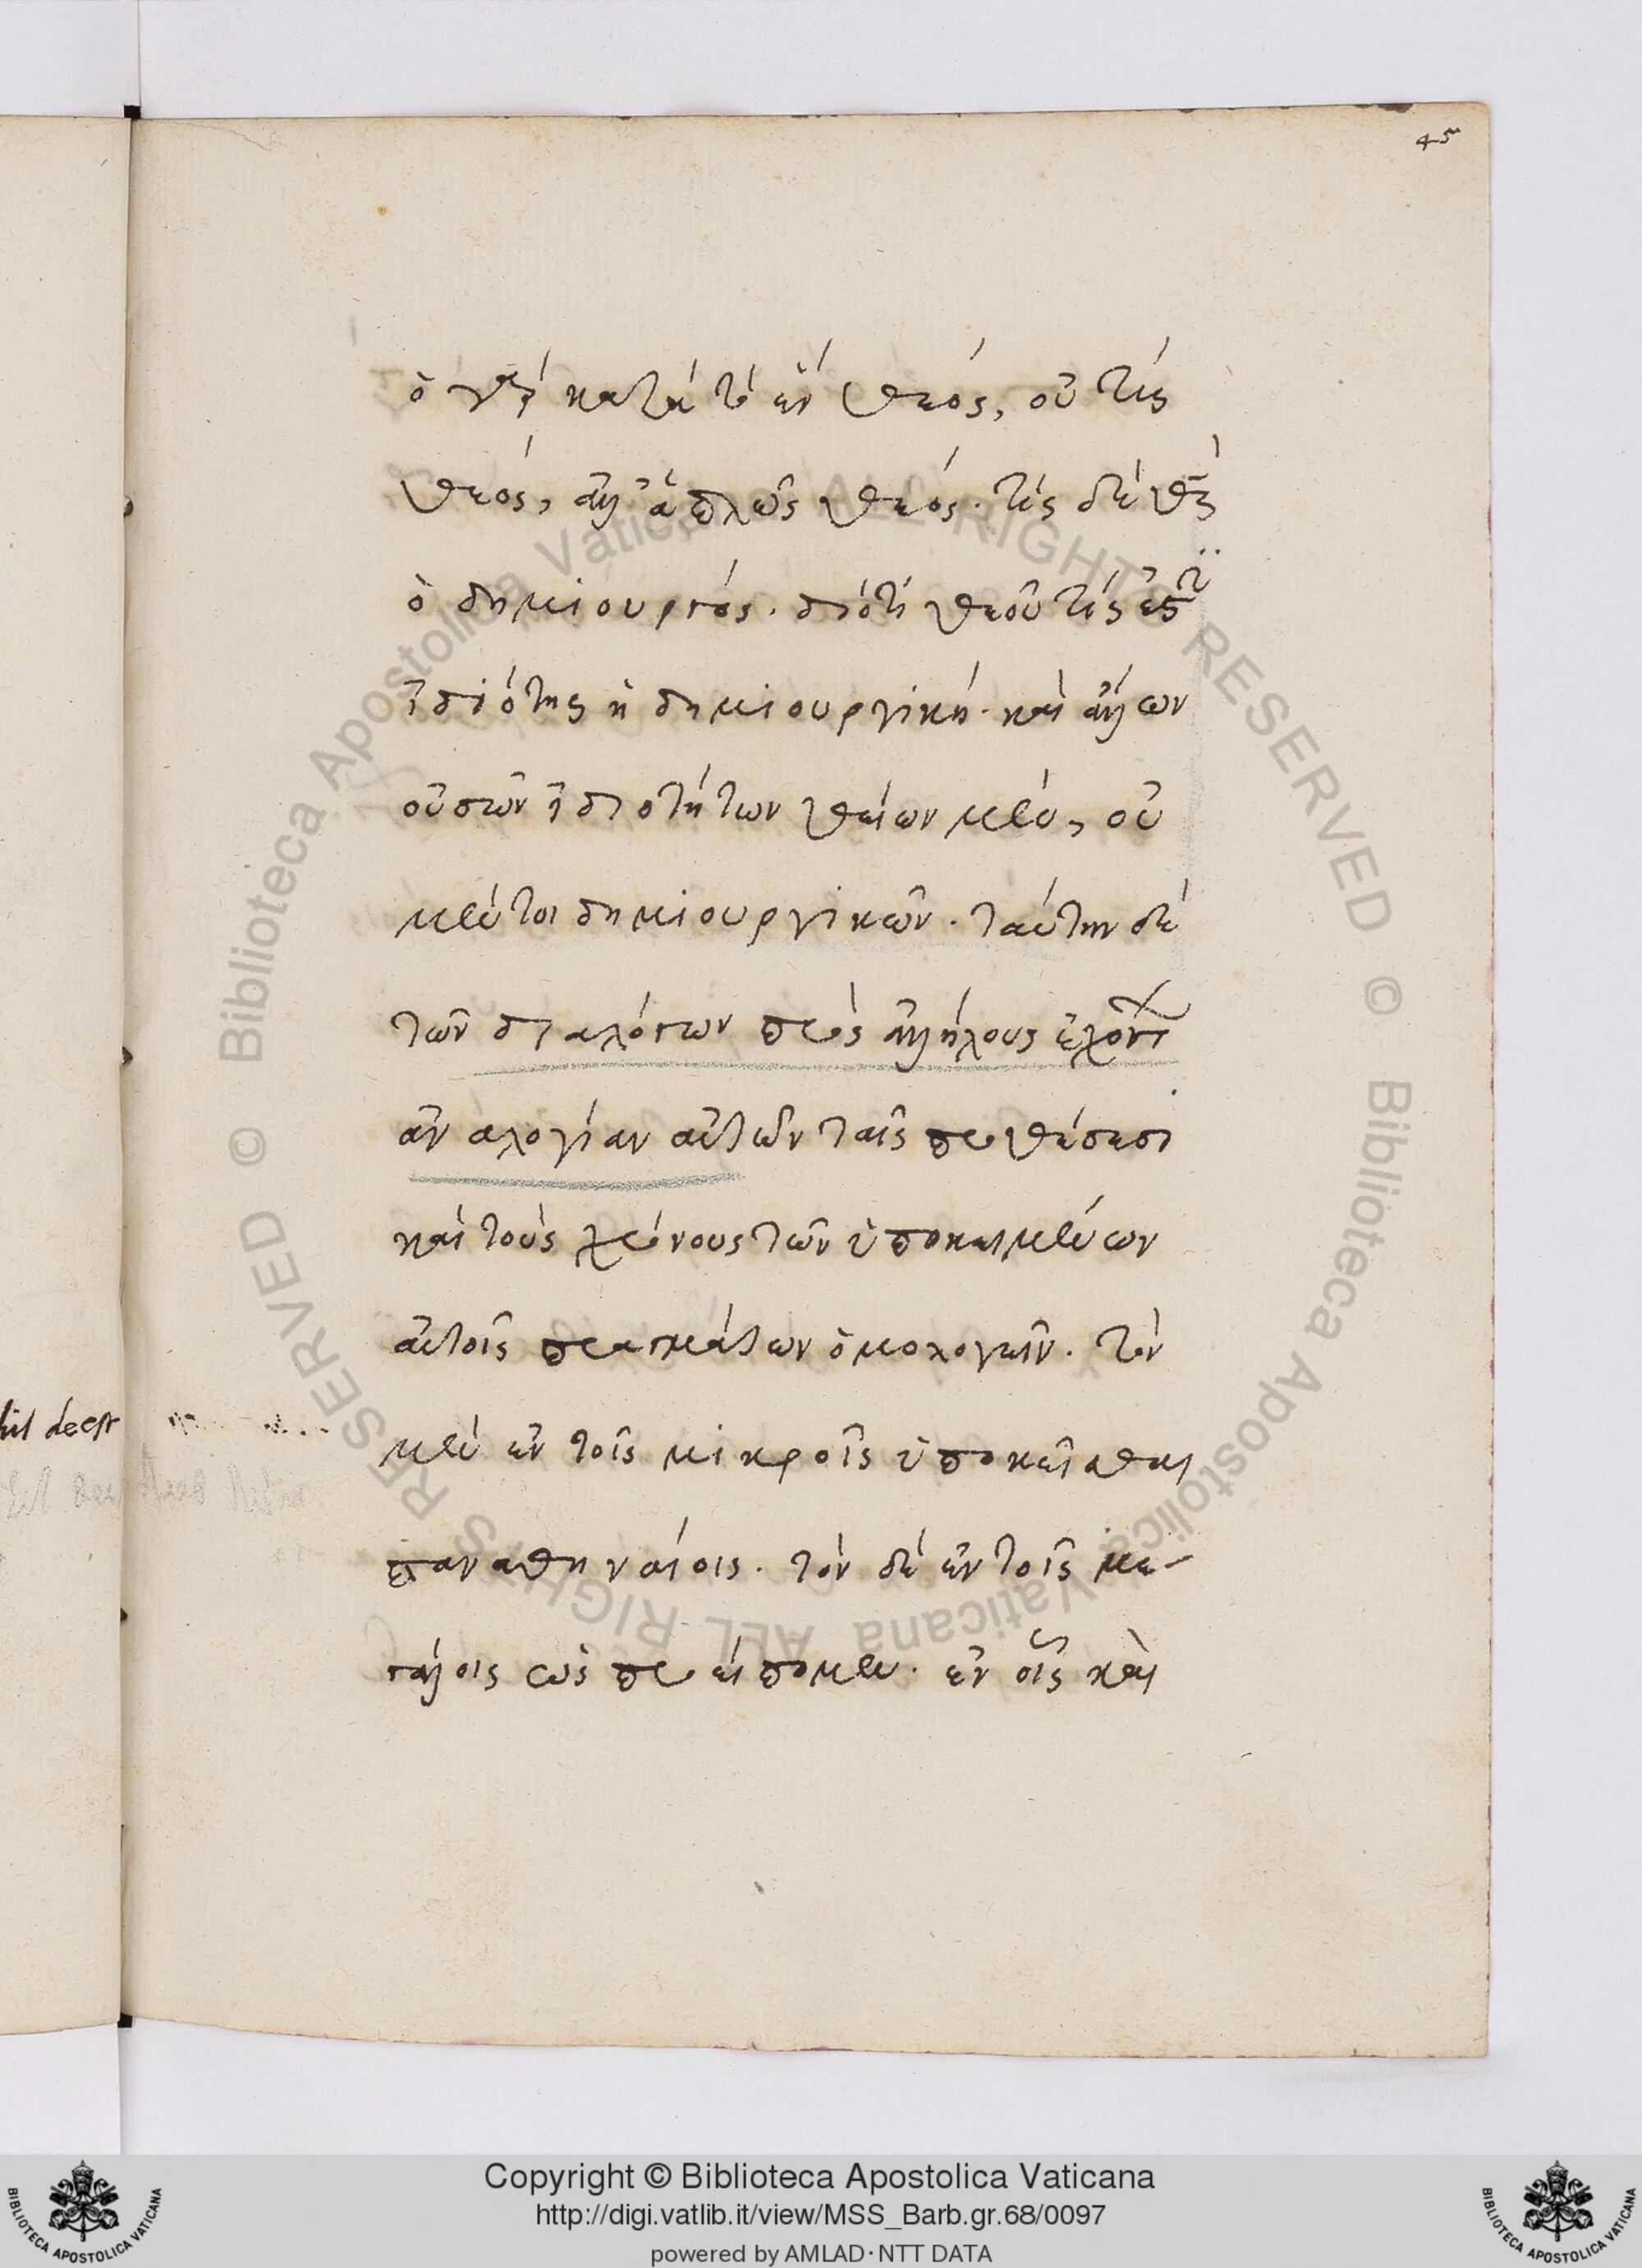 45
ὁ γὰρ κατὰ τὸ ἓν θεός, οὔ τίς
θεός, ἀλλ' ἁπλῶς θεός. τὶς δὲ θς
ὁ δημιουργός. διότι θεοῦ τίς ἐστ
ἰδιότης ἡ δημιουργικὴ. καὶ ἄλλων
οὐσῶν ἰδιοτήτων θείων μὲν, οὐ
μέντοι δημιουργικῶν. ταύτην δὲ
τῶν διαλόγων πρὸς ἀλλήλους ἐχόντ
ἀναλογίαν αὐτῶν ταῖς προθέσεσι
καὶ τοὺς χρόνους τῶν ὑποκειμένων
αὐτοῖς πραγμάτων ὁμολογεῖν. τὸν
μὲν ἐν τοῖς μικροῖς ὑποκεῖσθαι
παναθηναίοις. τὸν δὲ ἐν τοῖς με-
γάλοις ὡς προείπομεν. ἐν οἷς καὶ
deest
© Biblioteca Apostolica Vaticana ALL RIGHTS RESERVED © Biblioteca Apostolica Vaticana ALL RIGHTS RESERVED
Copyright © Biblioteca Apostolica Vaticana
http://digi.vatlib.it/view/MSS_Barb.gr.68/0097
powered by AMLAD·NTT DATA
BIBLIOTECA APOSTOLICA VATICANA
BIBLIOTECA APOSTOLICA VATICANA